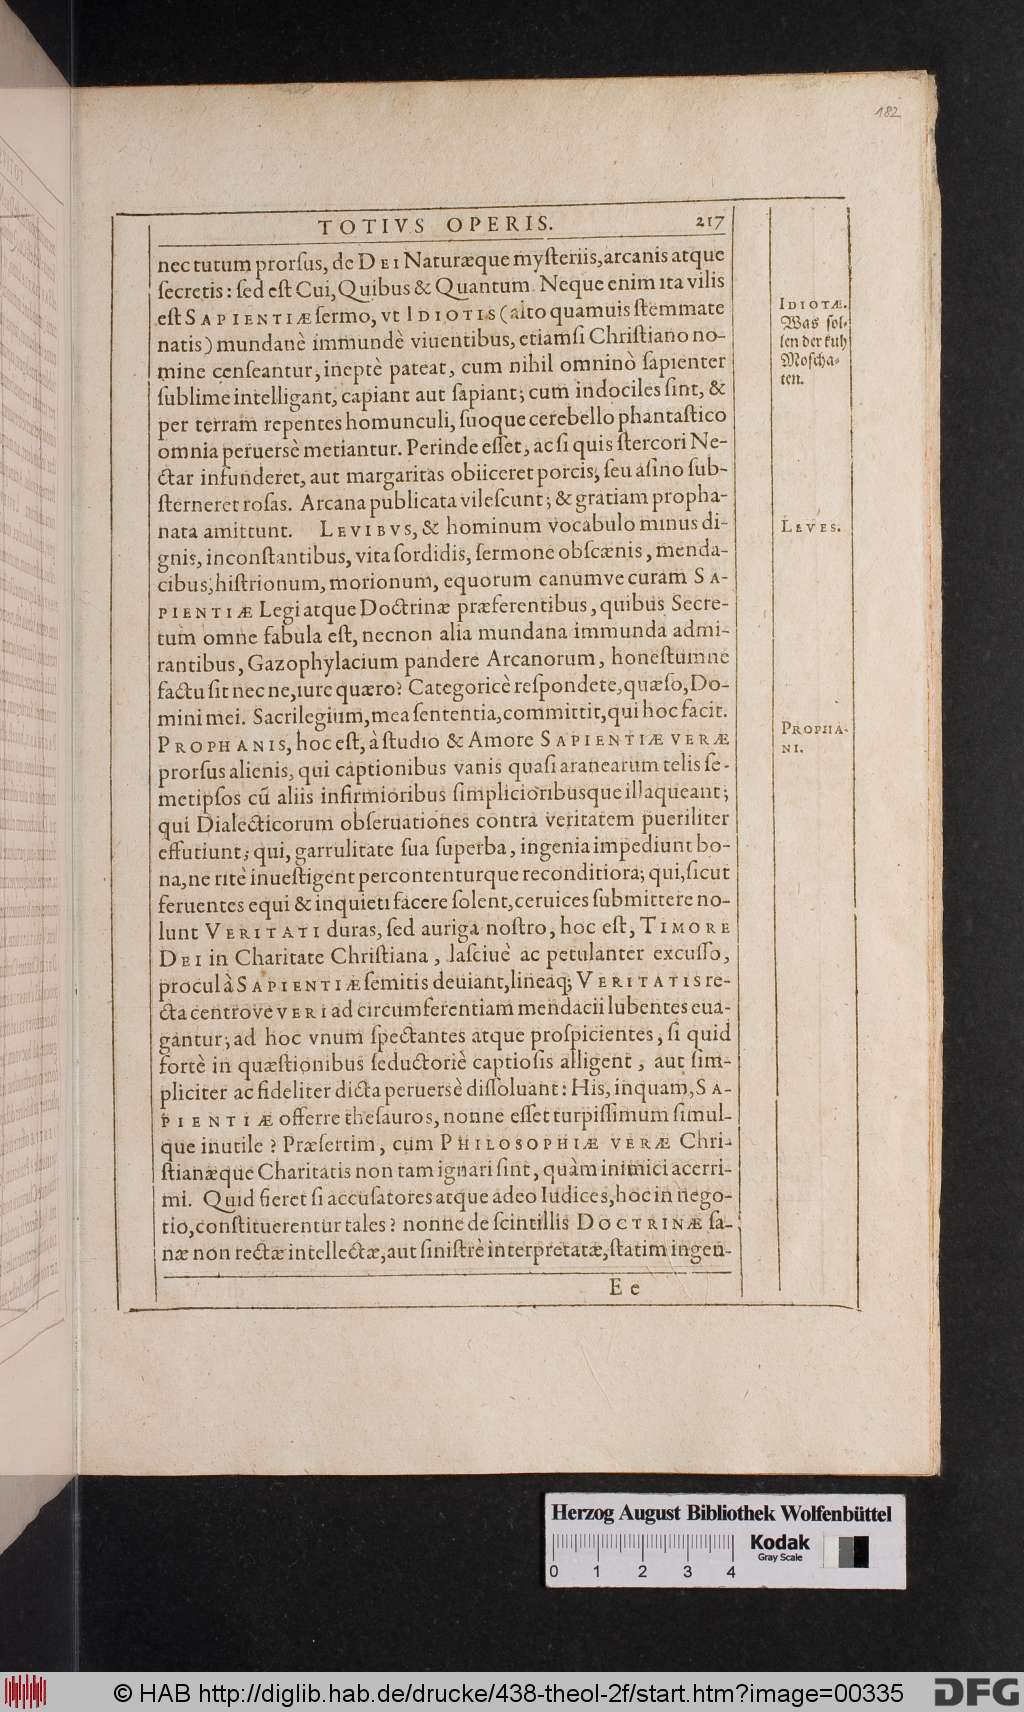 182
TOTIVS OPERIS. 217
nec tutum prorſus, de DEI Naturæque myſteriis, arcanis atque
ſecretis: ſed eſt Cui, Quibus & Quantum. Neque enim ita vilis
eſt SAPIENTIÆ ſermo, vt IDIOTIS (alto quamuis ſtemmate
natis) mundanè immundè viuentibus, etiamſi Chriſtiano no-
mine cenſeantur, ineptè pateat, cum nihil omninò ſapienter
ſublime intelligant, capiant aut ſapiant; cum indociles ſint, &
per terram repentes homunculi, ſuoque cerebello phantaſtico
omnia peruersè metiantur. Perinde eſſet, ac ſi quis ſtercori Ne-
ctar infunderet, aut margaritas obiiceret porcis, ſeu aſino ſub-
ſterneret roſas. Arcana publicata vileſcunt; & gratiam propha-
nata amittunt. LEVIBVS, & hominum vocabulo minus di-
gnis, inconſtantibus, vita ſordidis, ſermone obſcænis, menda-
cibus; hiſtrionum, morionum, equorum canumve curam SA-
PIENTIÆ Legi atque Doctrinæ præferentibus, quibus Secre-
tum omne fabula eſt, necnon alia mundana immunda admi-
rantibus, Gazophylacium pandere Arcanorum, honeſtumne
factu ſit nec ne, iure quæro? Categoricè reſpondete, quæſo, Do-
mini mei. Sacrilegium, mea ſententia, committit, qui hoc facit.
PROPHANIS, hoc eſt, à ſtudio & Amore SAPIENTIÆ VERÆ
prorſus alienis, qui captionibus vanis quaſi aranearum telis ſe-
metipſos cũ aliis infirmioribus ſimplicioribusque illaqueant;
qui Dialecticorum obſeruationes contra veritatem pueriliter
effutiunt; qui, garrulitate ſua ſuperba, ingenia impediunt bo-
na, ne ritè inueſtigent percontenturque reconditiora; qui, ſicut
feruentes equi & inquieti facere ſolent, ceruices ſubmittere no-
lunt VERITATI duras, ſed auriga noſtro, hoc eſt, TIMORE
DEI in Charitate Chriſtiana, laſciuè ac petulanter excuſſo,
procul à SAPIENTIÆ ſemitis deuiant, lineaq; VERITATIS re-
cta centrove VERI ad circumferentiam mendacii lubentes eua-
gantur; ad hoc vnum ſpectantes atque proſpicientes, ſi quid
fortè in quæſtionibus ſeductoriè captioſis alligent, aut ſim-
pliciter ac fideliter dicta peruersè diſſoluant: His, inquam, SA-
PIENTIÆ offerre theſauros, nonne eſſet turpiſſimum ſimul-
que inutile? Præſertim, cum PHILOSOPHIÆ VERÆ Chri-
ſtianæque Charitatis non tam ignari ſint, quàm inimici acerri-
mi. Quid fieret ſi accuſatores atque adeo Iudices, hoc in nego-
tio, conſtituerentur tales? nonne de ſcintillis DOCTRINÆ ſa-
næ non rectæ intellectæ, aut ſiniſtrè interpretatæ, ſtatim ingen-
Ee
IDIOTÆ.
Was ſol-
len der kuh
Moſcha-
ten.
LEVES.
PROPHA-
NI.
Herzog August Bibliothek Wolfenbüttel
Kodak
Gray Scale
0 1 2 3 4
© HAB http://diglib.hab.de/drucke/438-theol-2f/start.htm?image=00335
DFG